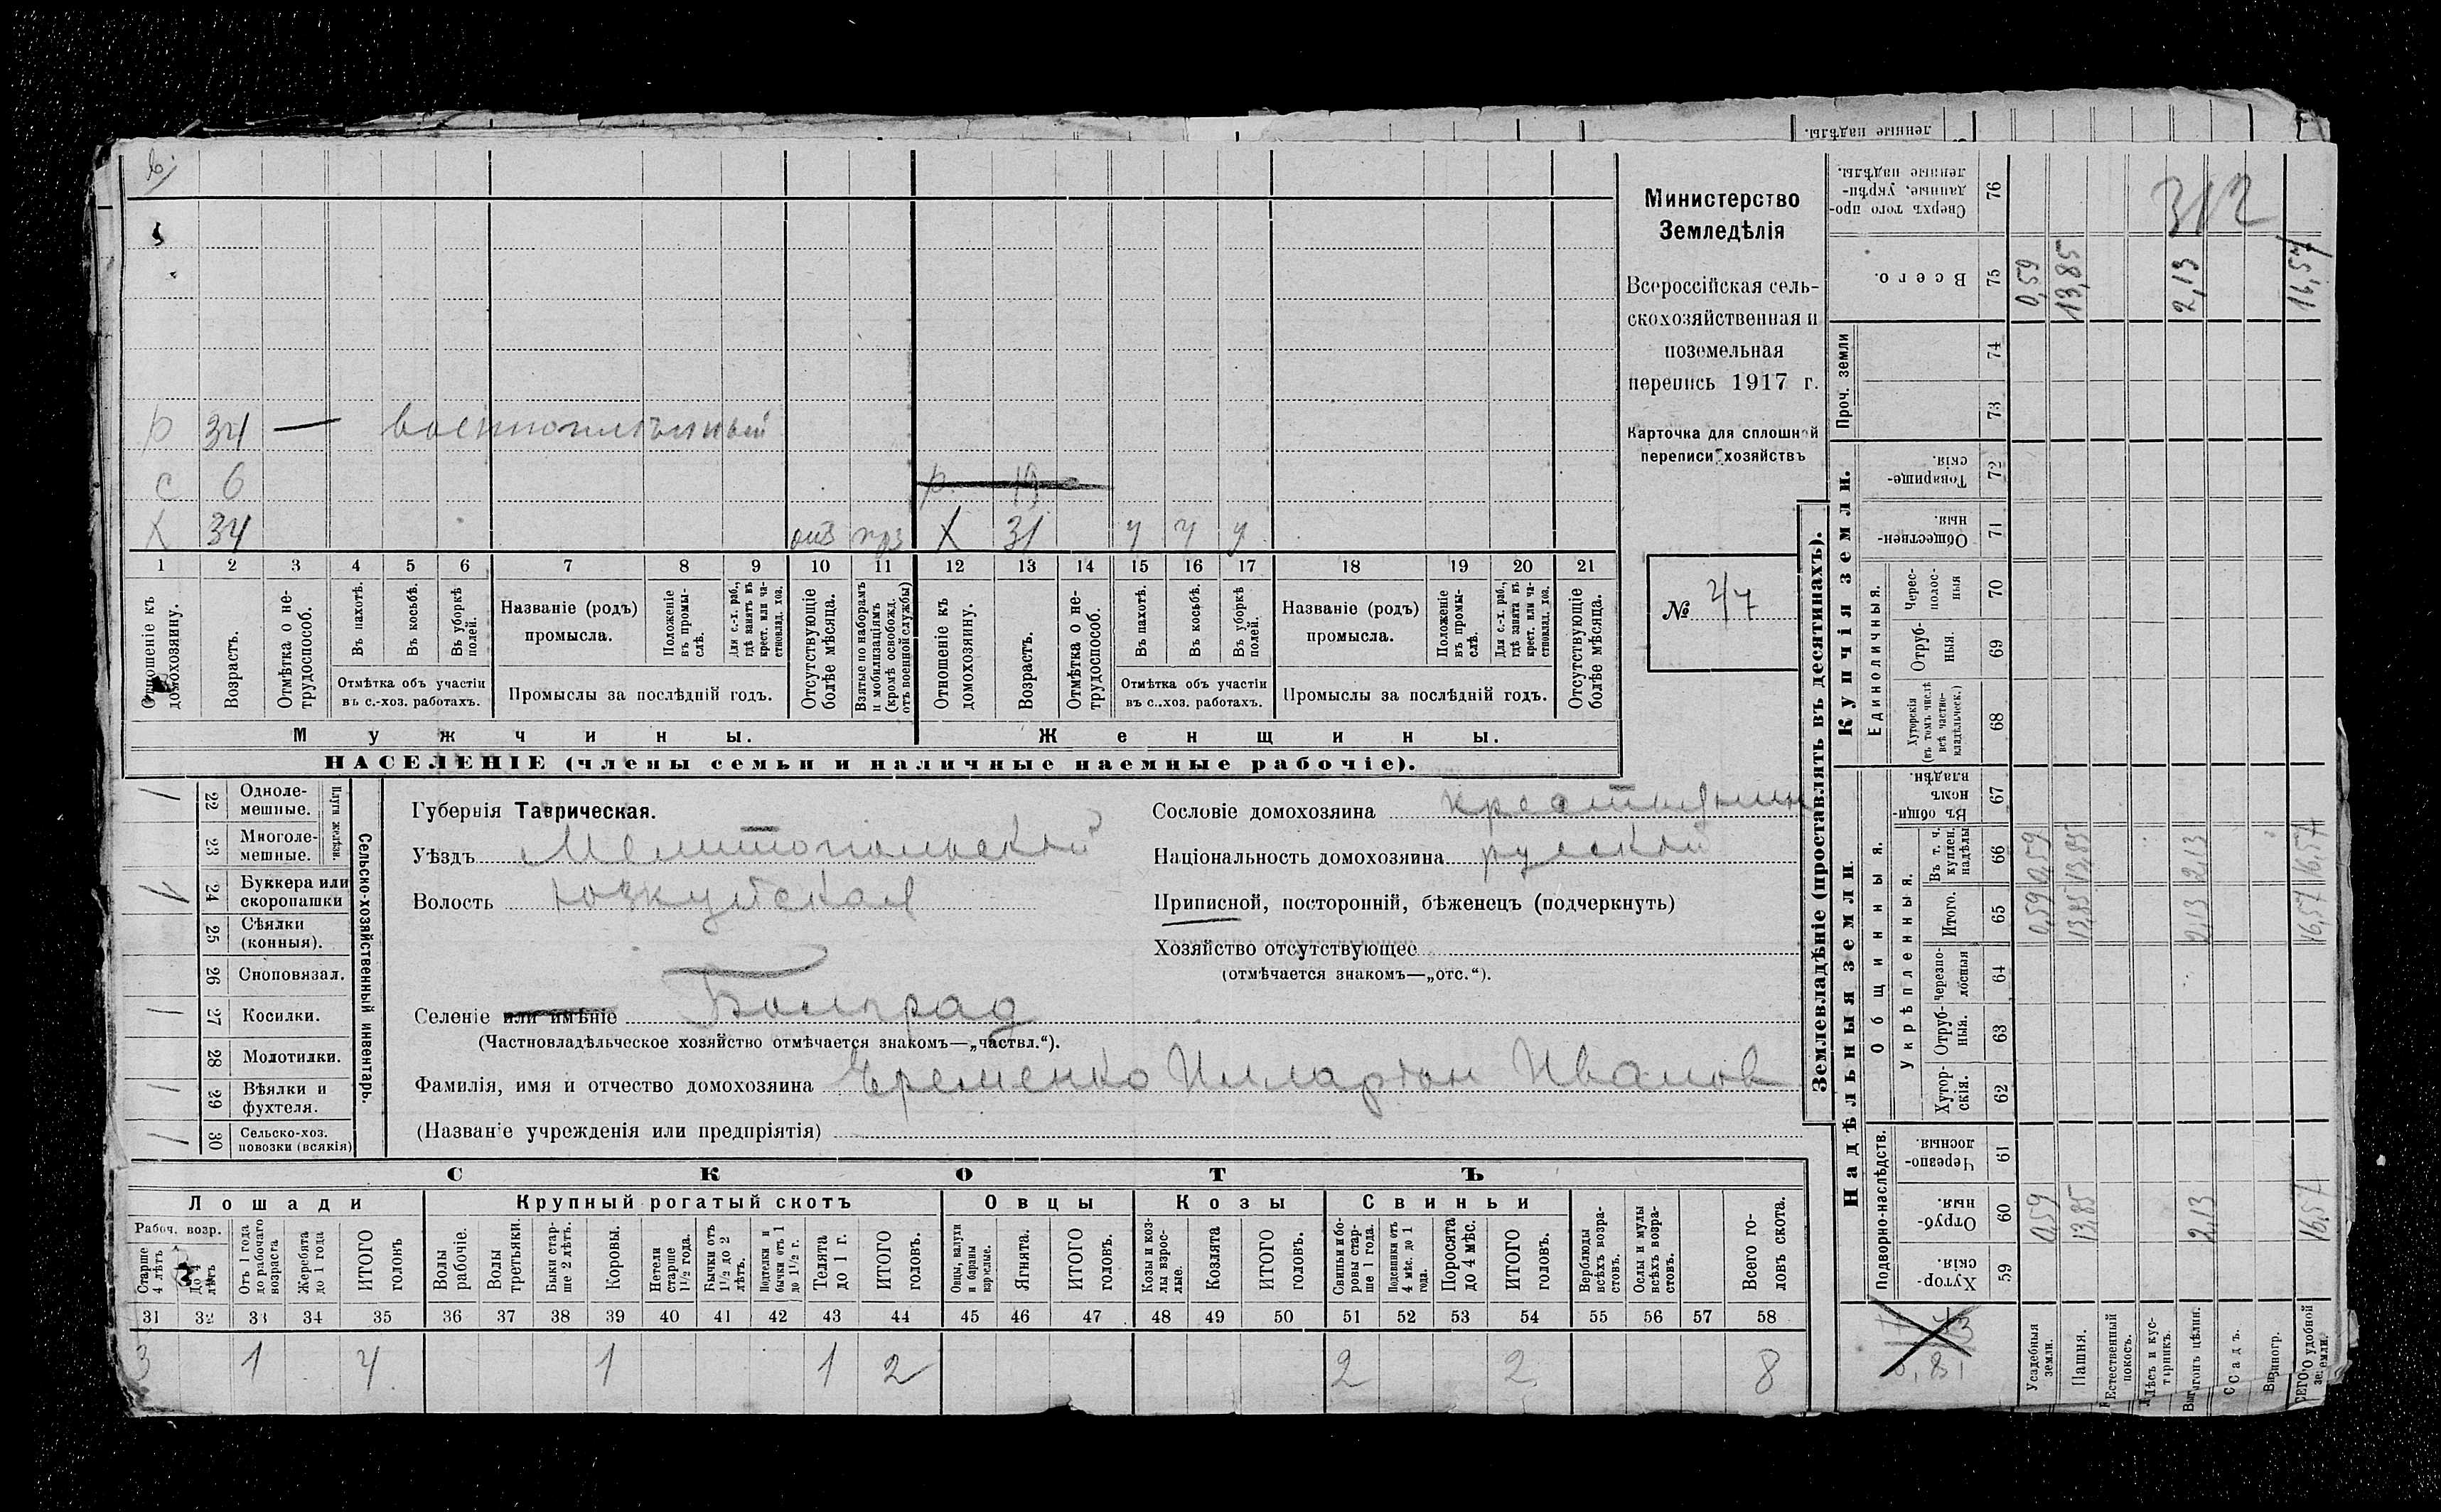 Министерство
Земледѣлія
Всероссійская сель-
скохозяйственная и
поземельная
перепись 1917 г.
Карточка для сплошной
переписи хозяйствъ
№ 27
р 34 — военноплѣнный
с 6 р. 19
Х 34 отс прз Х 31 ч ч у
1 2 3 4 5 6 7 8 9 10 11 12 13 14 15 16 17 18 19 20 21
Отношеніе къ домохозяину.
Возрастъ.
Отмѣтка о не-трудоспособ.
Въ пахотѣ.
Въ косьбѣ.
Въ уборкѣ полей.
Отмѣтка объ участіи
въ с.-хоз. работахъ.
Названіе (родъ)
промысла.
Положеніе въ промы-слѣ.
Для с.-х. раб., гдѣ занятъ въ крест. или ча-стновлад. хоз.
Промыслы за послѣдній годъ.
Отсутствующіе болѣе мѣсяца.
Взятые по наборамъ и мобилизаціямъ (кромѣ освобожд. отъ военной службы)
Отношеніе къ домохозяину.
Возрастъ.
Отмѣтка о не-трудоспособ.
Въ пахотѣ.
Въ косьбѣ.
Въ уборкѣ полей.
Отмѣтка объ участіи
въ с..хоз. работахъ.
Названіе (родъ)
промысла.
Положеніе въ промы-слѣ.
Для с.-х. раб., гдѣ занята въ крест. или ча-стновлад. хоз.
Промыслы за послѣдній годъ.
Отсутствующіе болѣе мѣсяца.
Мужчины. Женщины.
НАСЕЛЕНІЕ (члены семьи и наличные наемные рабочіе).
Сельско-хозяйственный инвентарь.
Плуги желѣзн.
/ 22 Одноле-мешные.
23 Многоле-мешные.
24 Буккера или скоропашки
25 Сѣялки (конныя).
26 Сноповязал.
/ 27 Косилки.
28 Молотилки.
/ 29 Вѣялки и фухтеля.
/ 30 Сельско-хоз. повозки (всякія)
Губернія Таврическая.
Уѣздъ Мелитопольскій
Волость Юзкуйская
Селеніе или имѣніе Болград
(Частновладѣльческое хозяйство отмѣчается знакомъ—„частвл.“).
Фамилія, имя и отчество домохозяина Еременко Илларіон Иванов
(Названіе учрежденія или предпріятія)
Сословіе домохозяина крестьянин
Національность домохозяина русскій
Приписной, посторонній, бѣженецъ (подчеркнуть)
Хозяйство отсутствующее
(отмѣчается знакомъ—„отс.“).
СКОТЪ
Лошади Крупный рогатый скотъ Овцы Козы Свиньи
Рабоч. возр.
Старше 4 лѣтъ
До 4 лѣтъ
Отъ 1 года до рабочаго возраста
Жеребята до 1 года
ИТОГО головъ
Волы рабочіе.
Волы третьяки.
Быки стар-ше 2 лѣтъ.
Коровы.
Нетели старше 1½ года.
Бычки отъ 1½ до 2 лѣтъ.
Подтелки и бычки отъ 1 до 1½ г.
Телята до 1 г.
ИТОГО головъ.
Овцы, валухи и бараны взрослые.
Ягнята.
ИТОГО головъ.
Козы и коз-лы взрос-лые.
Козлята
ИТОГО головъ.
Свиньи и бо-ровы стар-ше 1 года.
Подсвинки отъ 4 мѣс. до 1 года.
Поросята до 4 мѣс.
ИТОГО головъ.
Верблюды всѣхъ возра-стовъ.
Ослы и мулы всѣхъ возра-стовъ.
Всего го-ловъ скота.
31 32 33 34 35 36 37 38 39 40 41 42 43 44 45 46 47 48 49 50 51 52 53 54 55 56 57 58
3 1 4 1 1 2 2 2 8
Землевладѣніе (проставлять въ десятинахъ).
Надѣльныя земли. Купчія земли. Проч. земли
Подворно-наслѣдств. Общинныя. Укрѣпленныя. Единоличныя.
Хутор-скія. 59
Отруб-ныя. 60
Черезпо-лосныя 61
Хутор-скія. 62
Отруб-ныя. 63
Черезпо-лосныя 64
Итого. 65
Въ т. ч. куплен. надѣлы 66
Въ общи-номъ владѣн. 67
Хуторскія (въ томъ числѣ всѣ частно-владѣльческ.) 68
Отруб-ныя. 69
Черес-полос-ныя 70
Обществен-ныя. 71
Товарище-скія. 72
73
74
Всего. 75
Сверхъ того про-данные, укрѣп-ленные надѣлы. 76
312
Усадебныя земли. 0,59 0,59 0,59 0,59
Пашня. 13,85 13,85 13,85 13,85
Естественный покосъ.
Лѣсъ и кус-тарникъ.
Выгонъ цѣлин. 2,13 2,13 2,13 2,13
Садъ.
Виногр.
ВСЕГО удобной земли. 16,57 16,57 16,57 16,57
ленные надѣлы.